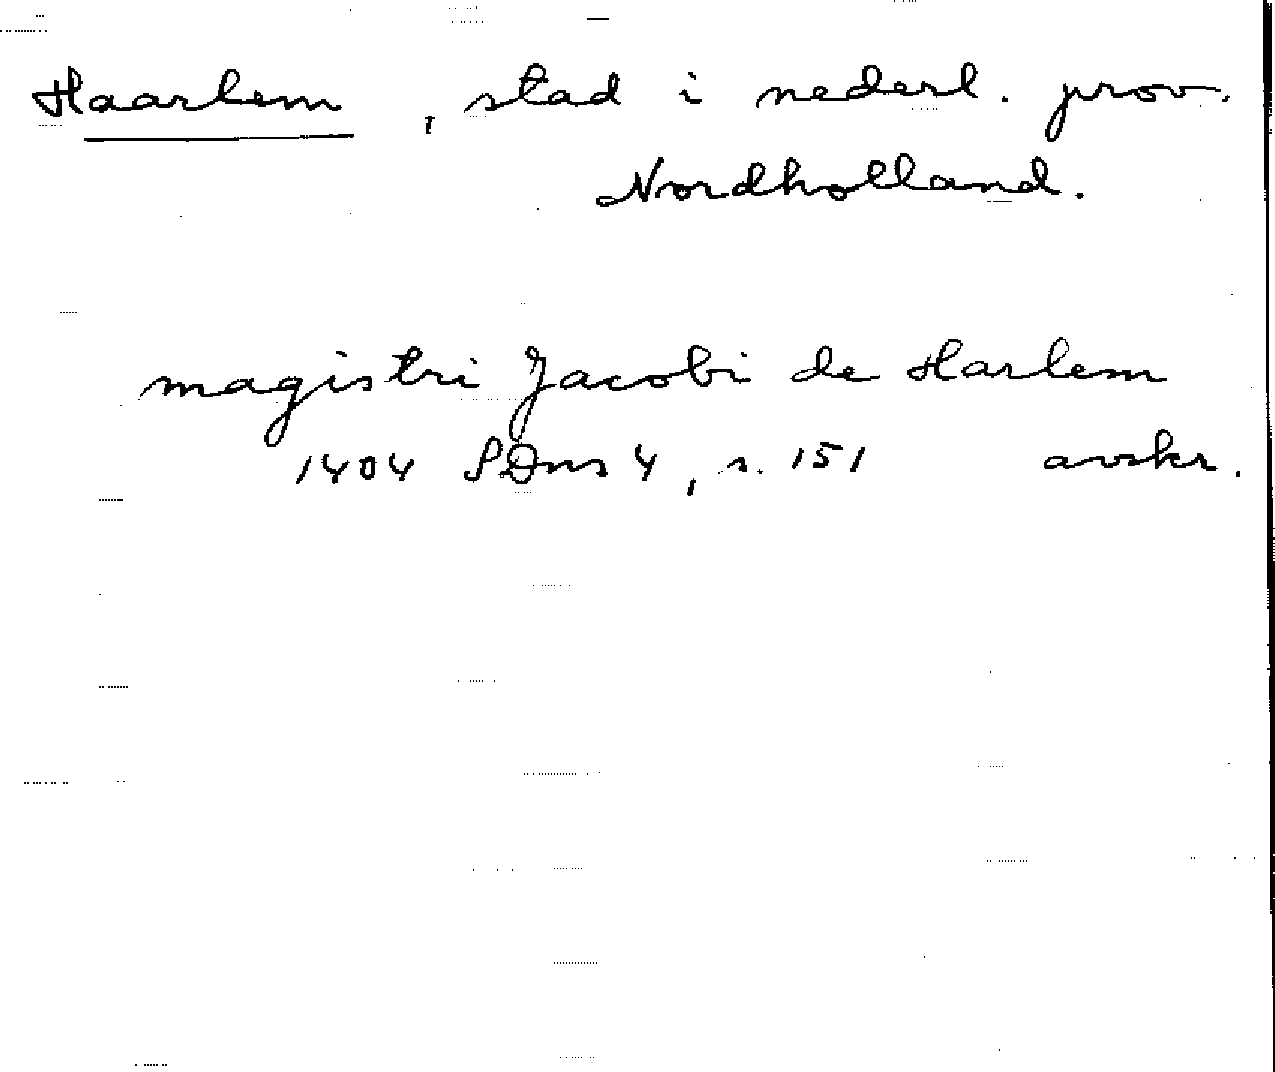 Haarlem, stad i nederl. prov.
Nordholland.
magistri Jacobi de Harlem
1404 SDns 4, s. 151 avskr.